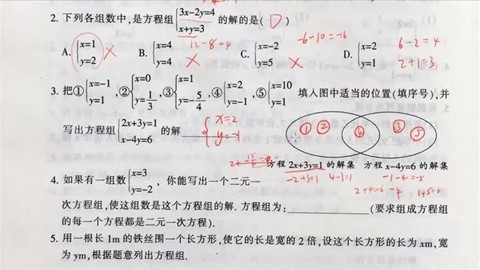 2. 下列各组数中,是方程组{3x-2y=4 x+y=3 的解的是( D )
A. {x=1 y=2 × B. {x=4 y=4 12-8=4 × C. {x=-2 y=5 -6-10=-16 × D. {x=2 y=1 6-2=4 2+1=3
3. 把①{x=-1 y=1,②{x=0 y=1/3,③{x=1 y=-5/4,④{x=2 y=-1,⑤{x=10 y=1 填入图中适当的位置(填序号),并
写出方程组{2x+3y=1 x-4y=6 的解 {x=2 y=-1 ① ② ④ ③ ⑤
方程 2x+3y=1 的解集 方程 x-4y=6 的解集
-2+3=1 4-3=1 -1-4=-5
2+4=6
4. 如果有一组数{x=3 y=-2,你能写出一个二元一
次方程组,使这组数是这个方程组的解. 方程组为:(要求组成方程组
的每一个方程都是二元一次方程).
5. 用一根长 1m 的铁丝围一个长方形,使它的长是宽的 2 倍,设这个长方形的长为 xm,宽
为 ym,根据题意列出方程组.